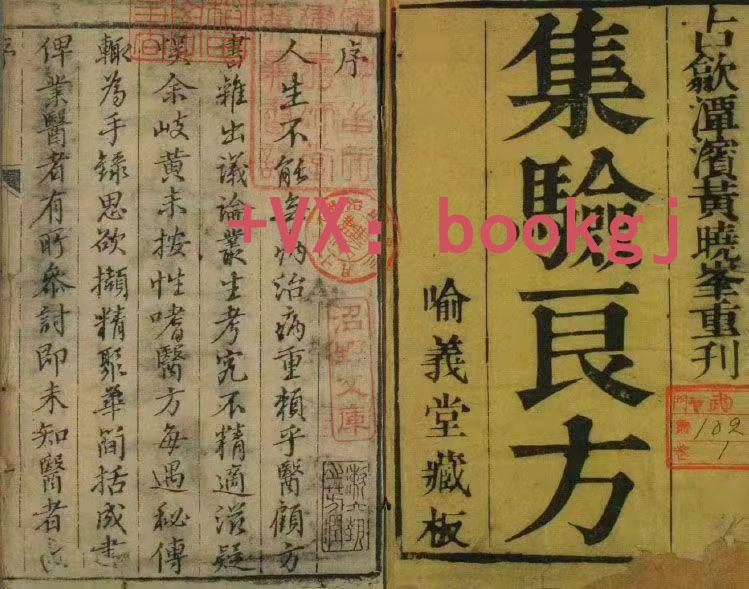 古歙潭濱黃曉峯重刊
集驗良方
喻義堂藏板
序
人生不能無病治病重賴乎醫顧方
書雜出議論叢生考究不精適滋疑
悞余岐黃未按性嗜醫方每遇秘傳
輙為手錄思欲擷精聚華簡括成書
俾業醫者有所參討即未知醫者
序
沼野文庫
102
1
+VX: bookgj